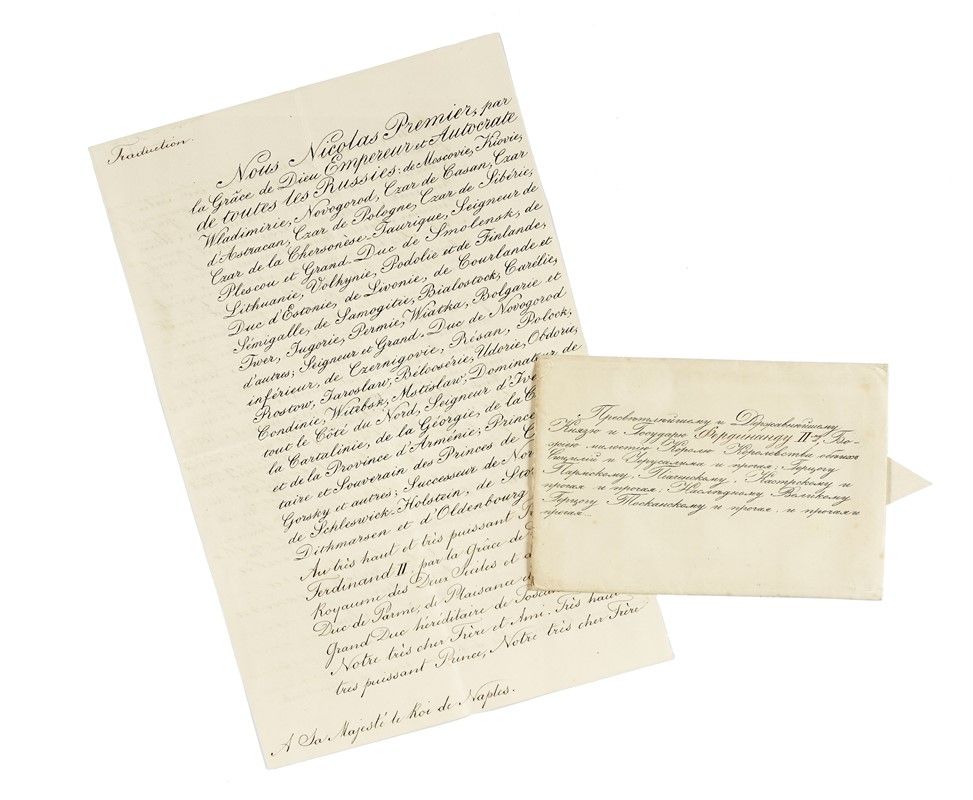 Traduction.
Nous Nicolas Premier, par
la Grâce de Dieu Empereur et Autocrate
de toutes les Russies: de Moscovie, Kiovie,
Wladimirie, Novogorod, Czar de Casan, Czar
d'Astracan, Czar de Pologne, Czar de Sibérie,
Czar de la Chersonèse-Taurique, Seigneur de
Plescou et Grand-Duc de Smolensk, de
Lithuanie, Volhynie, Podolie et de Finlande,
Duc d'Estonie, de Livonie, de Courlande et
Sémigalle, de Samogitie, Bialostock, Carélie,
Twer, Jugorie, Permie, Wiatka, Bolgarie et
d'autres; Seigneur et Grand-Duc de Novogorod
inférieur, de Czernigovie, Résan, Polock,
Rostow, Jaroslaw, Bélosérie, Udorie, Obdorie,
Condinie, Witebsk, Mstislaw; Dominateur de
tout le Côté du Nord, Seigneur d'Ive
la Cartalinie, de la Géorgie, de la C
et de la Province d'Arménie; Prince
taire et Souverain des Princes de C
Gorsky et autres; Successeur de Nor
de Schleswick-Holstein, de Sto
Dithmarsen et d'Oldenbourg
Au très haut et très puissant P
Ferdinand II. par la Grâce de
Royaume des Deux Siciles et
Duc de Parme, de Plaisance
Grand Duc héréditaire de Tosca
Notre très cher Frère et Ami. Très haut
très puissant Prince, Notre très cher Frère
A Sa Majesté le Roi de Naples.
Пресвѣтлѣйшему и Державнѣйшему
Князю и Государю Фердинанду II-му, Бо-
жіею милостію Королю Королевства обѣихъ
Сицилій и Іерусалима и прочая; Герцогу
Пармскому, Піаченскому, Кастрскому и
прочая и прочая; Наслѣдному Великому
Герцогу Тосканскому и прочая, и прочая и
прочая.